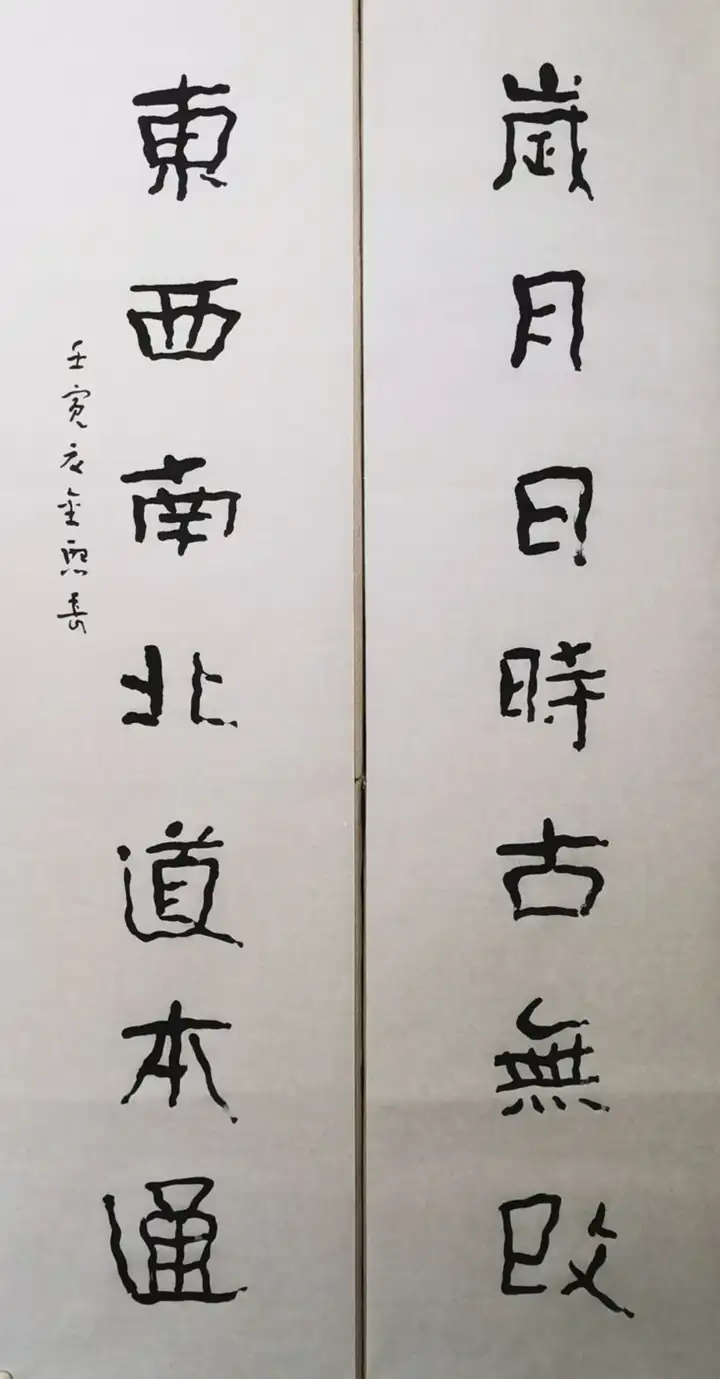 歲月日時古無改
東西南北道本通
壬寅夜金熙長